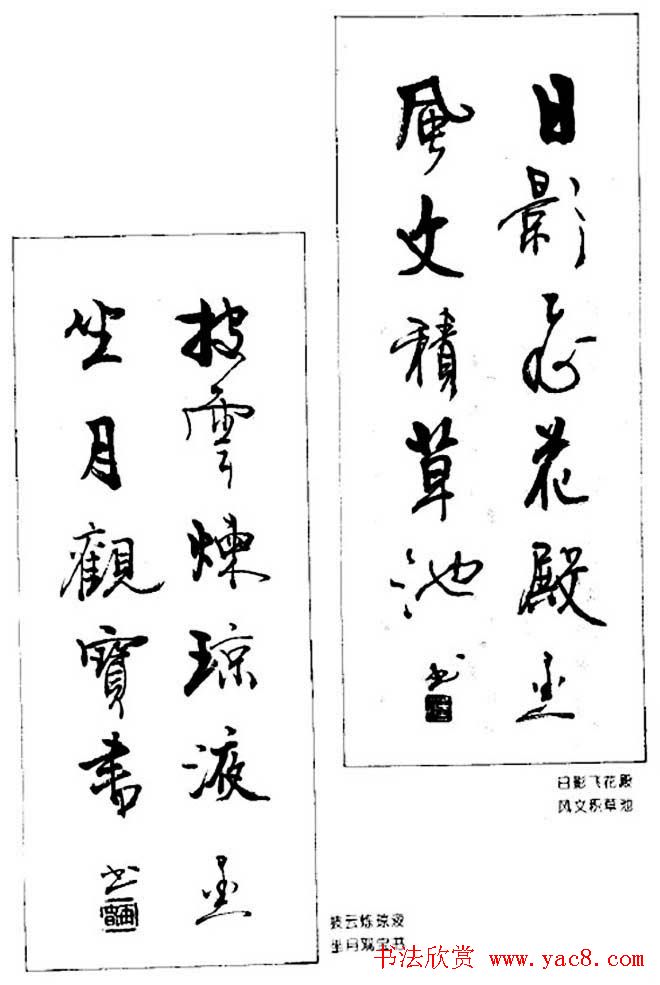 日影飛花殿
風文積草池
书
日影飞花殿
风文积草池
披雲煉琼液
坐月觀寶書
书
披云炼琼液
坐月观宝书
书法欣赏 www.yac8.com